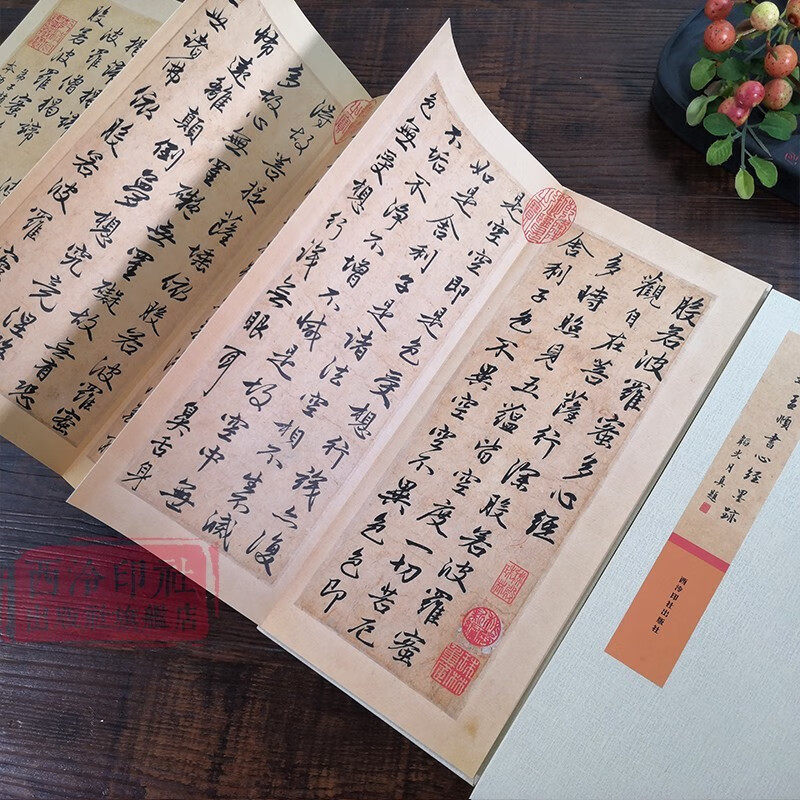 般若波羅蜜多心經
觀自在菩薩行深般若波羅蜜
多時照見五蘊皆空度一切苦厄
舍利子色不異空空不異色色即
是空空即是色受想行識亦復
如是舍利子是諸法空相不生滅
不垢不淨不增不減是故空中無
色無受想行識無眼耳鼻舌身
得故菩提薩埵依般若波羅蜜
多故心無罣礙無罣礙故無有恐
怖遠離顛倒夢想究竟涅槃
世諸佛依般若波羅蜜
波羅僧揭諦
般若波羅蜜
孟頫書心經墨跡
西泠印社出版社
西泠印社
旗艦店